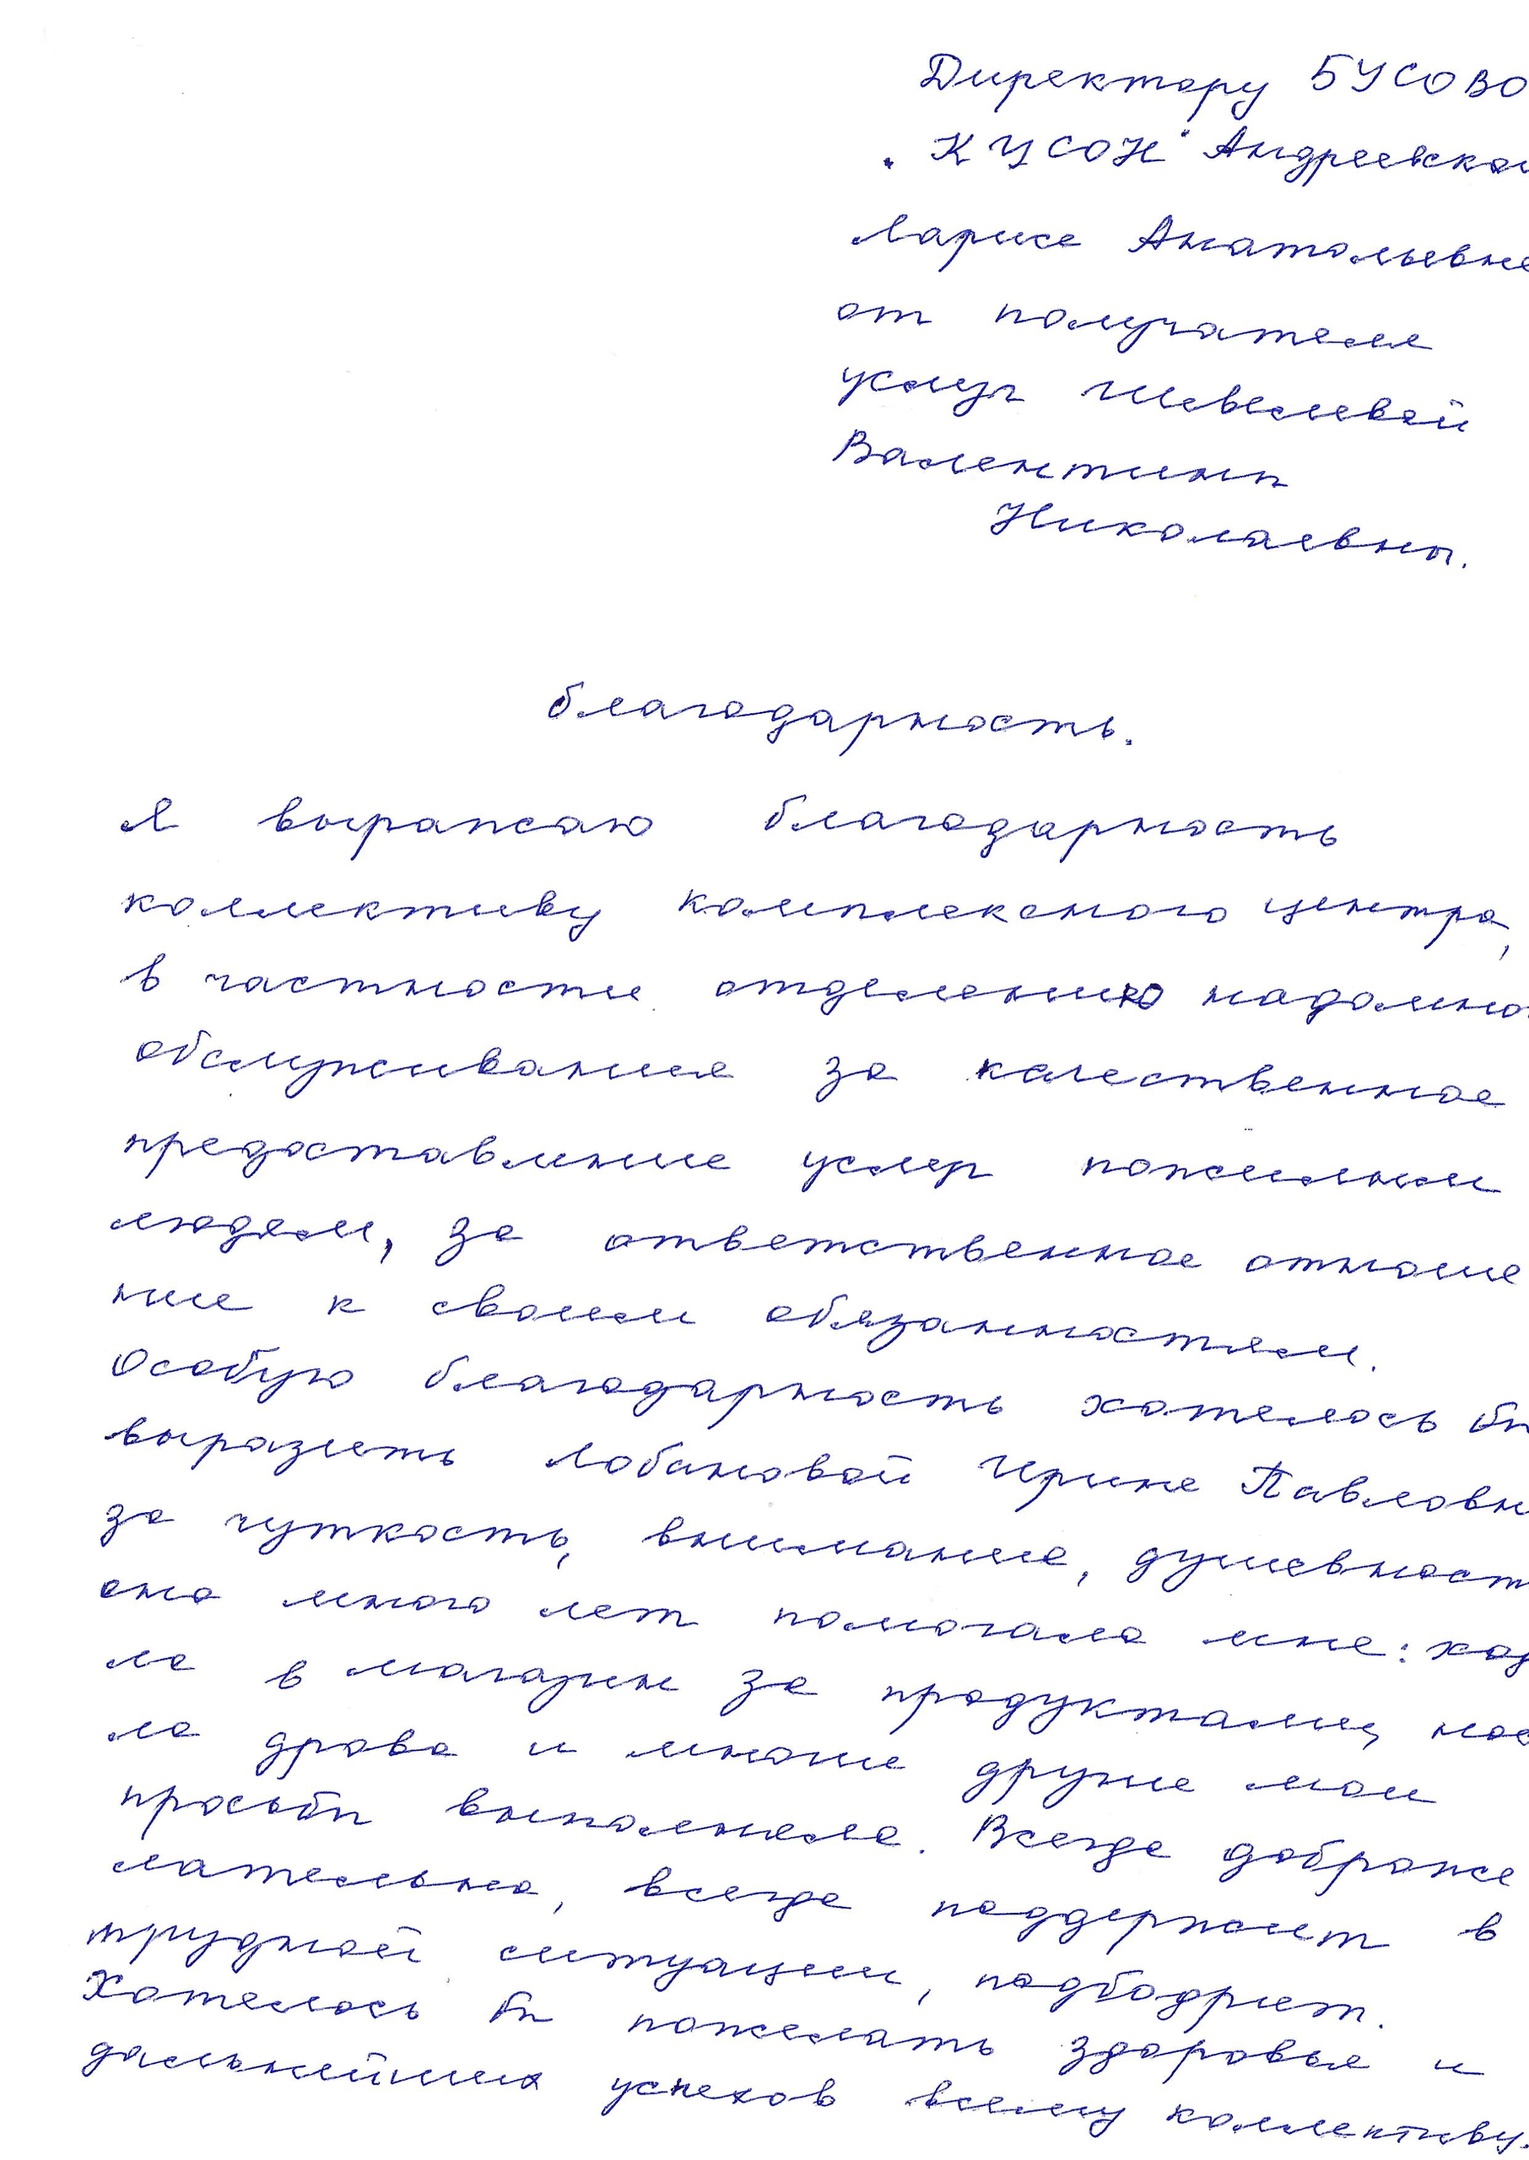 Директору БУСОВО
„КЦСОН" Андреевской
Ларисе Анатольевне
от получателя
услуг Шевелевой
Валентины
Николаевны.
Благодарность.
Я выражаю благодарность
коллективу комплексного центра,
в частности отделению надомно
обслуживания за качественное
предоставление услуг пожилым
людям, за ответственное отноше
ние к своим обязанностям.
Особую благодарность хотелось бы
выразить Лобановой Ирине Павловн
за чуткость, внимание, душевност
она много лет помогала мне: ход
ла в магазин за продуктами, нос
ла дрова и многие другие мои
просьбы выполняла. Всегда доброже
лательна, всегда поддержит в
трудной ситуации, подбодрит.
Хотелось бы пожелать здоровья и
дальнейших успехов всему коллективу.